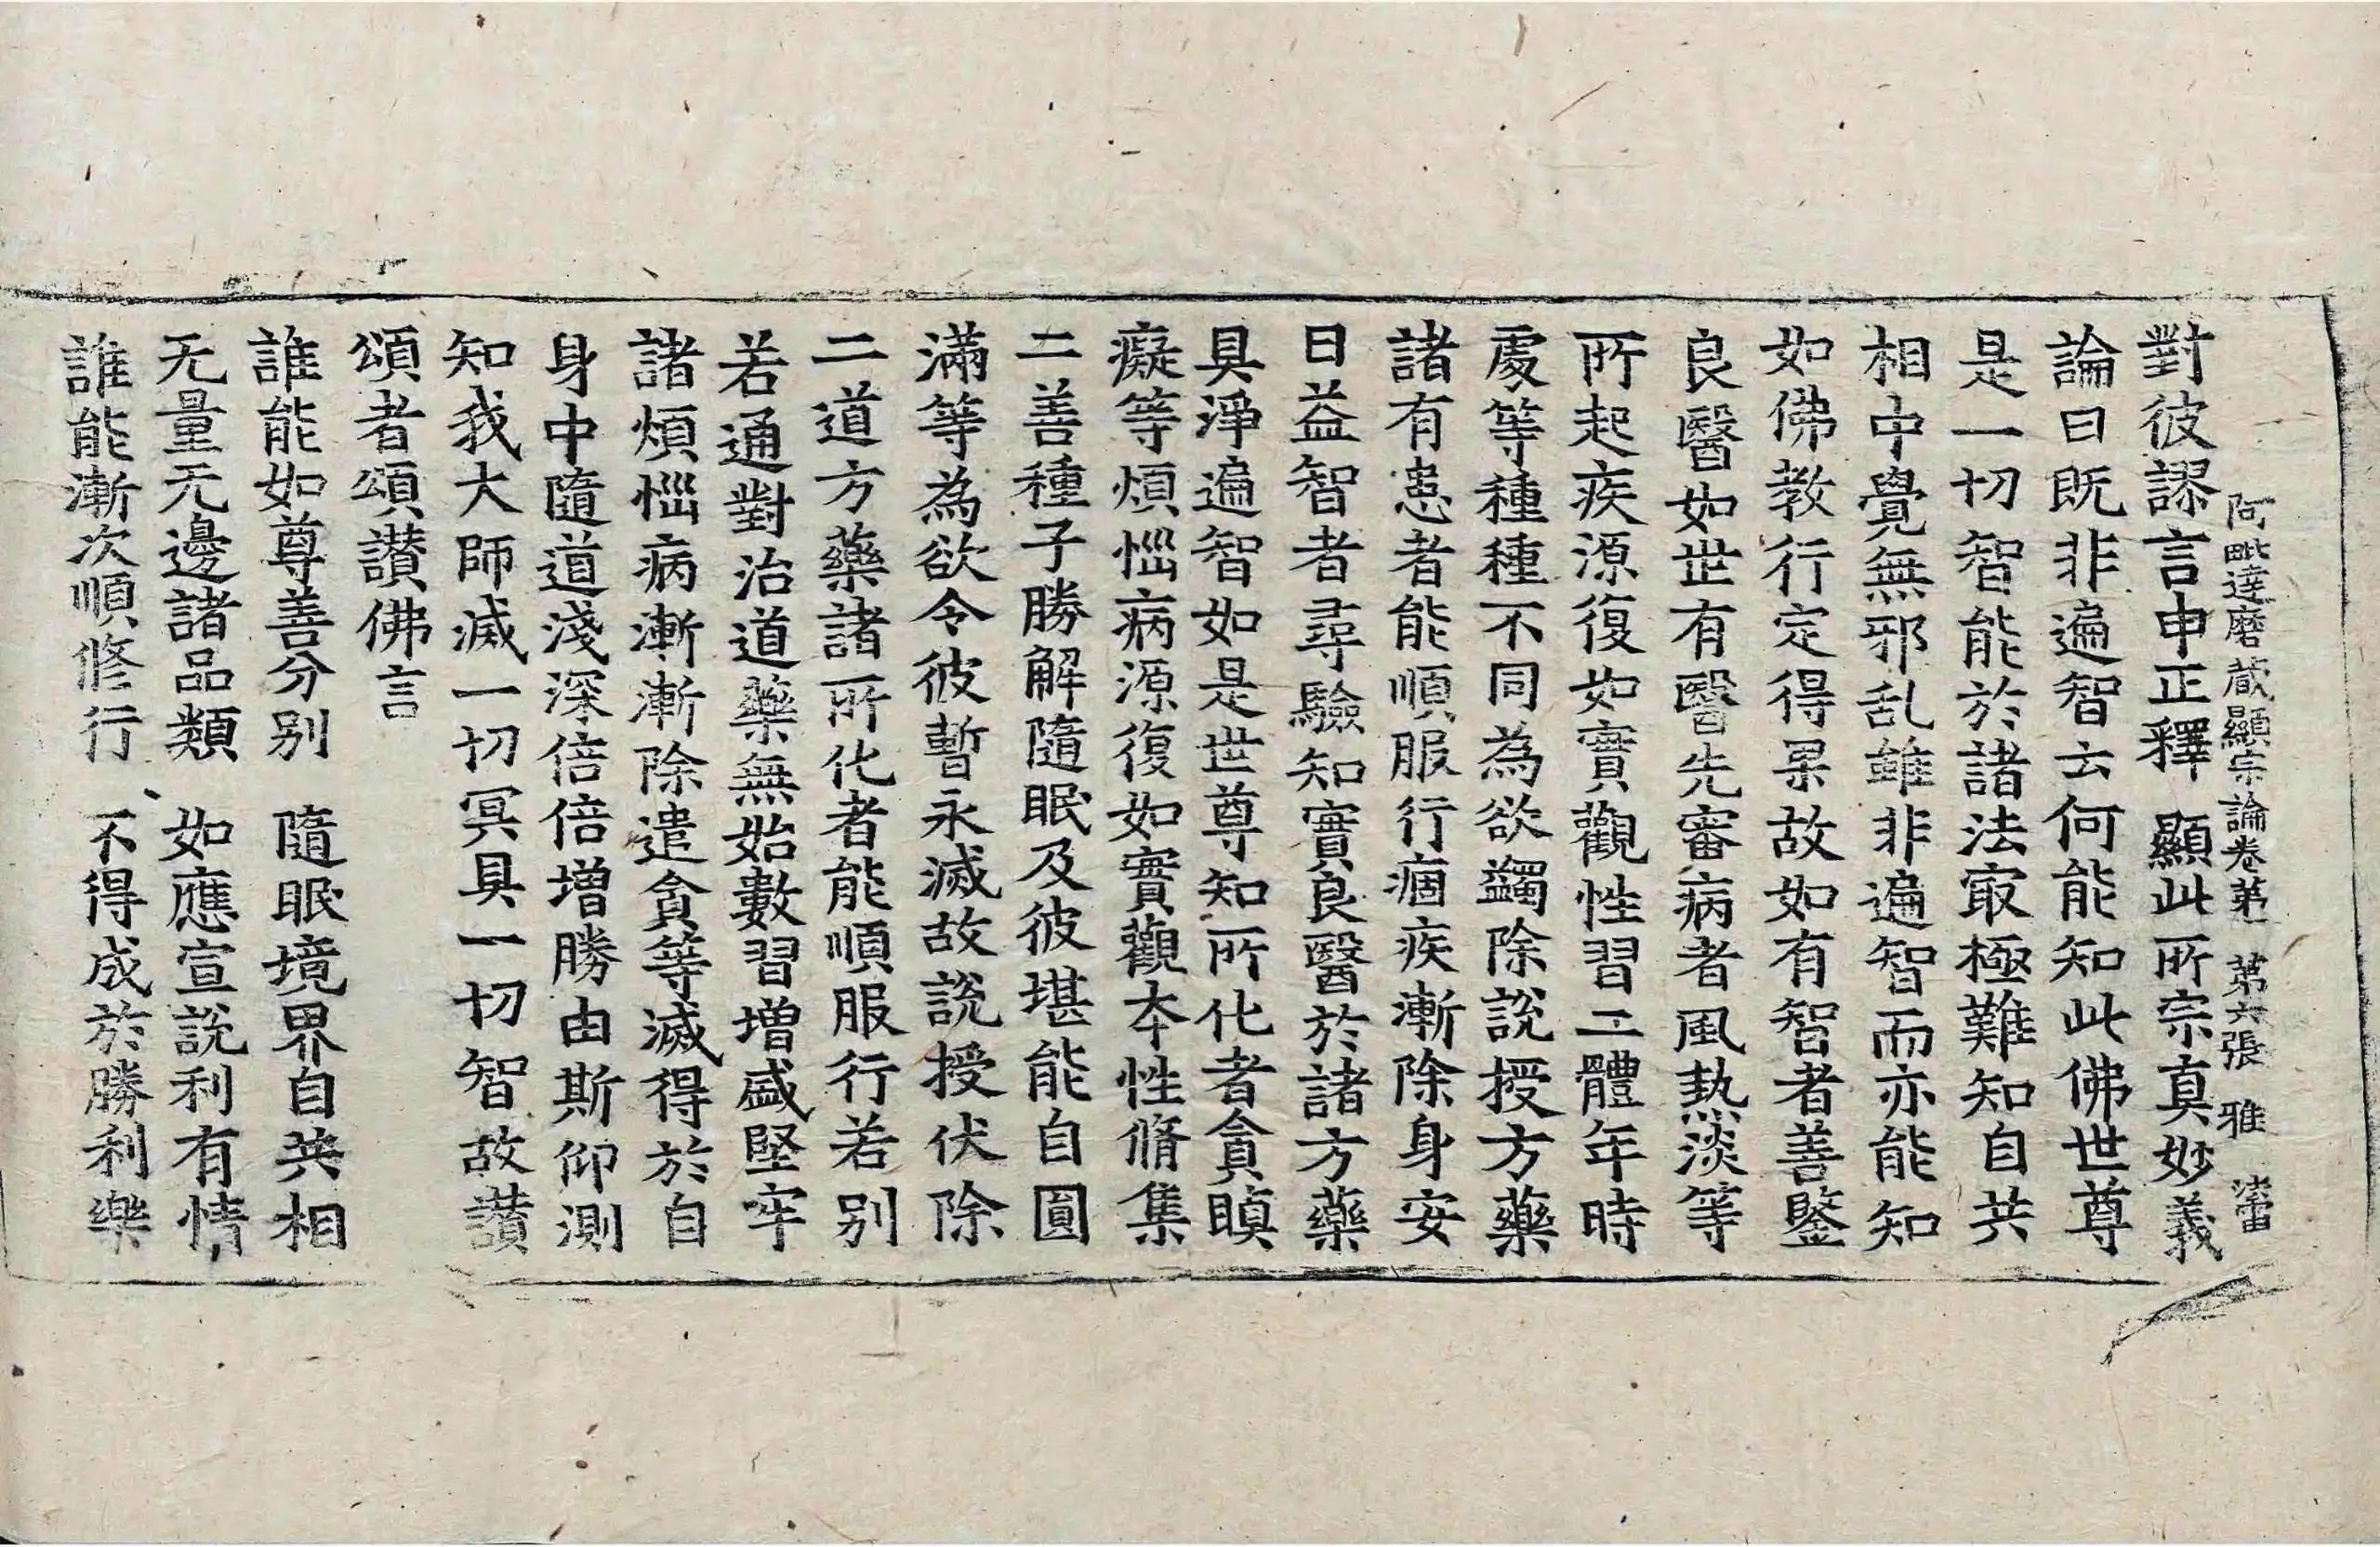 阿毗達磨藏顯宗論卷第一　第六張　雅
對彼謬言申正釋　顯此所宗真妙義
論曰既非遍智云何能知此佛世尊
是一切智能於諸法㝡極難知自共
相中覺無邪乱雖非遍智而亦能知
如佛教行定得果故如有智者善鑒
良醫如世有醫先審病者風熱淡等
所起疾源復如實觀性習二體年時
處等種種不同為欲蠲除說授方藥
諸有患者能順服行痼疾漸除身安
日益智者尋驗知實良醫於諸方藥
具淨遍智如是世尊知所化者貪瞋
癡等煩惱病源復如實觀本性脩集
二善種子勝解隨眠及彼堪能自圓
滿等為欲令彼暫永滅故說授伏除
二道方藥諸所化者能順服行若別
若通對治道藥無始數習增盛堅牢
諸煩惱病漸漸除遣貪等滅得於自
身中隨道淺深倍倍增勝由斯仰測
知我大師滅一切冥具一切智故讚
頌者頌讚佛言
誰能如尊善分別　隨眠境界自共相
无量无邊諸品類　如應宣說利有情
誰能漸次順修行　不得成於勝利樂